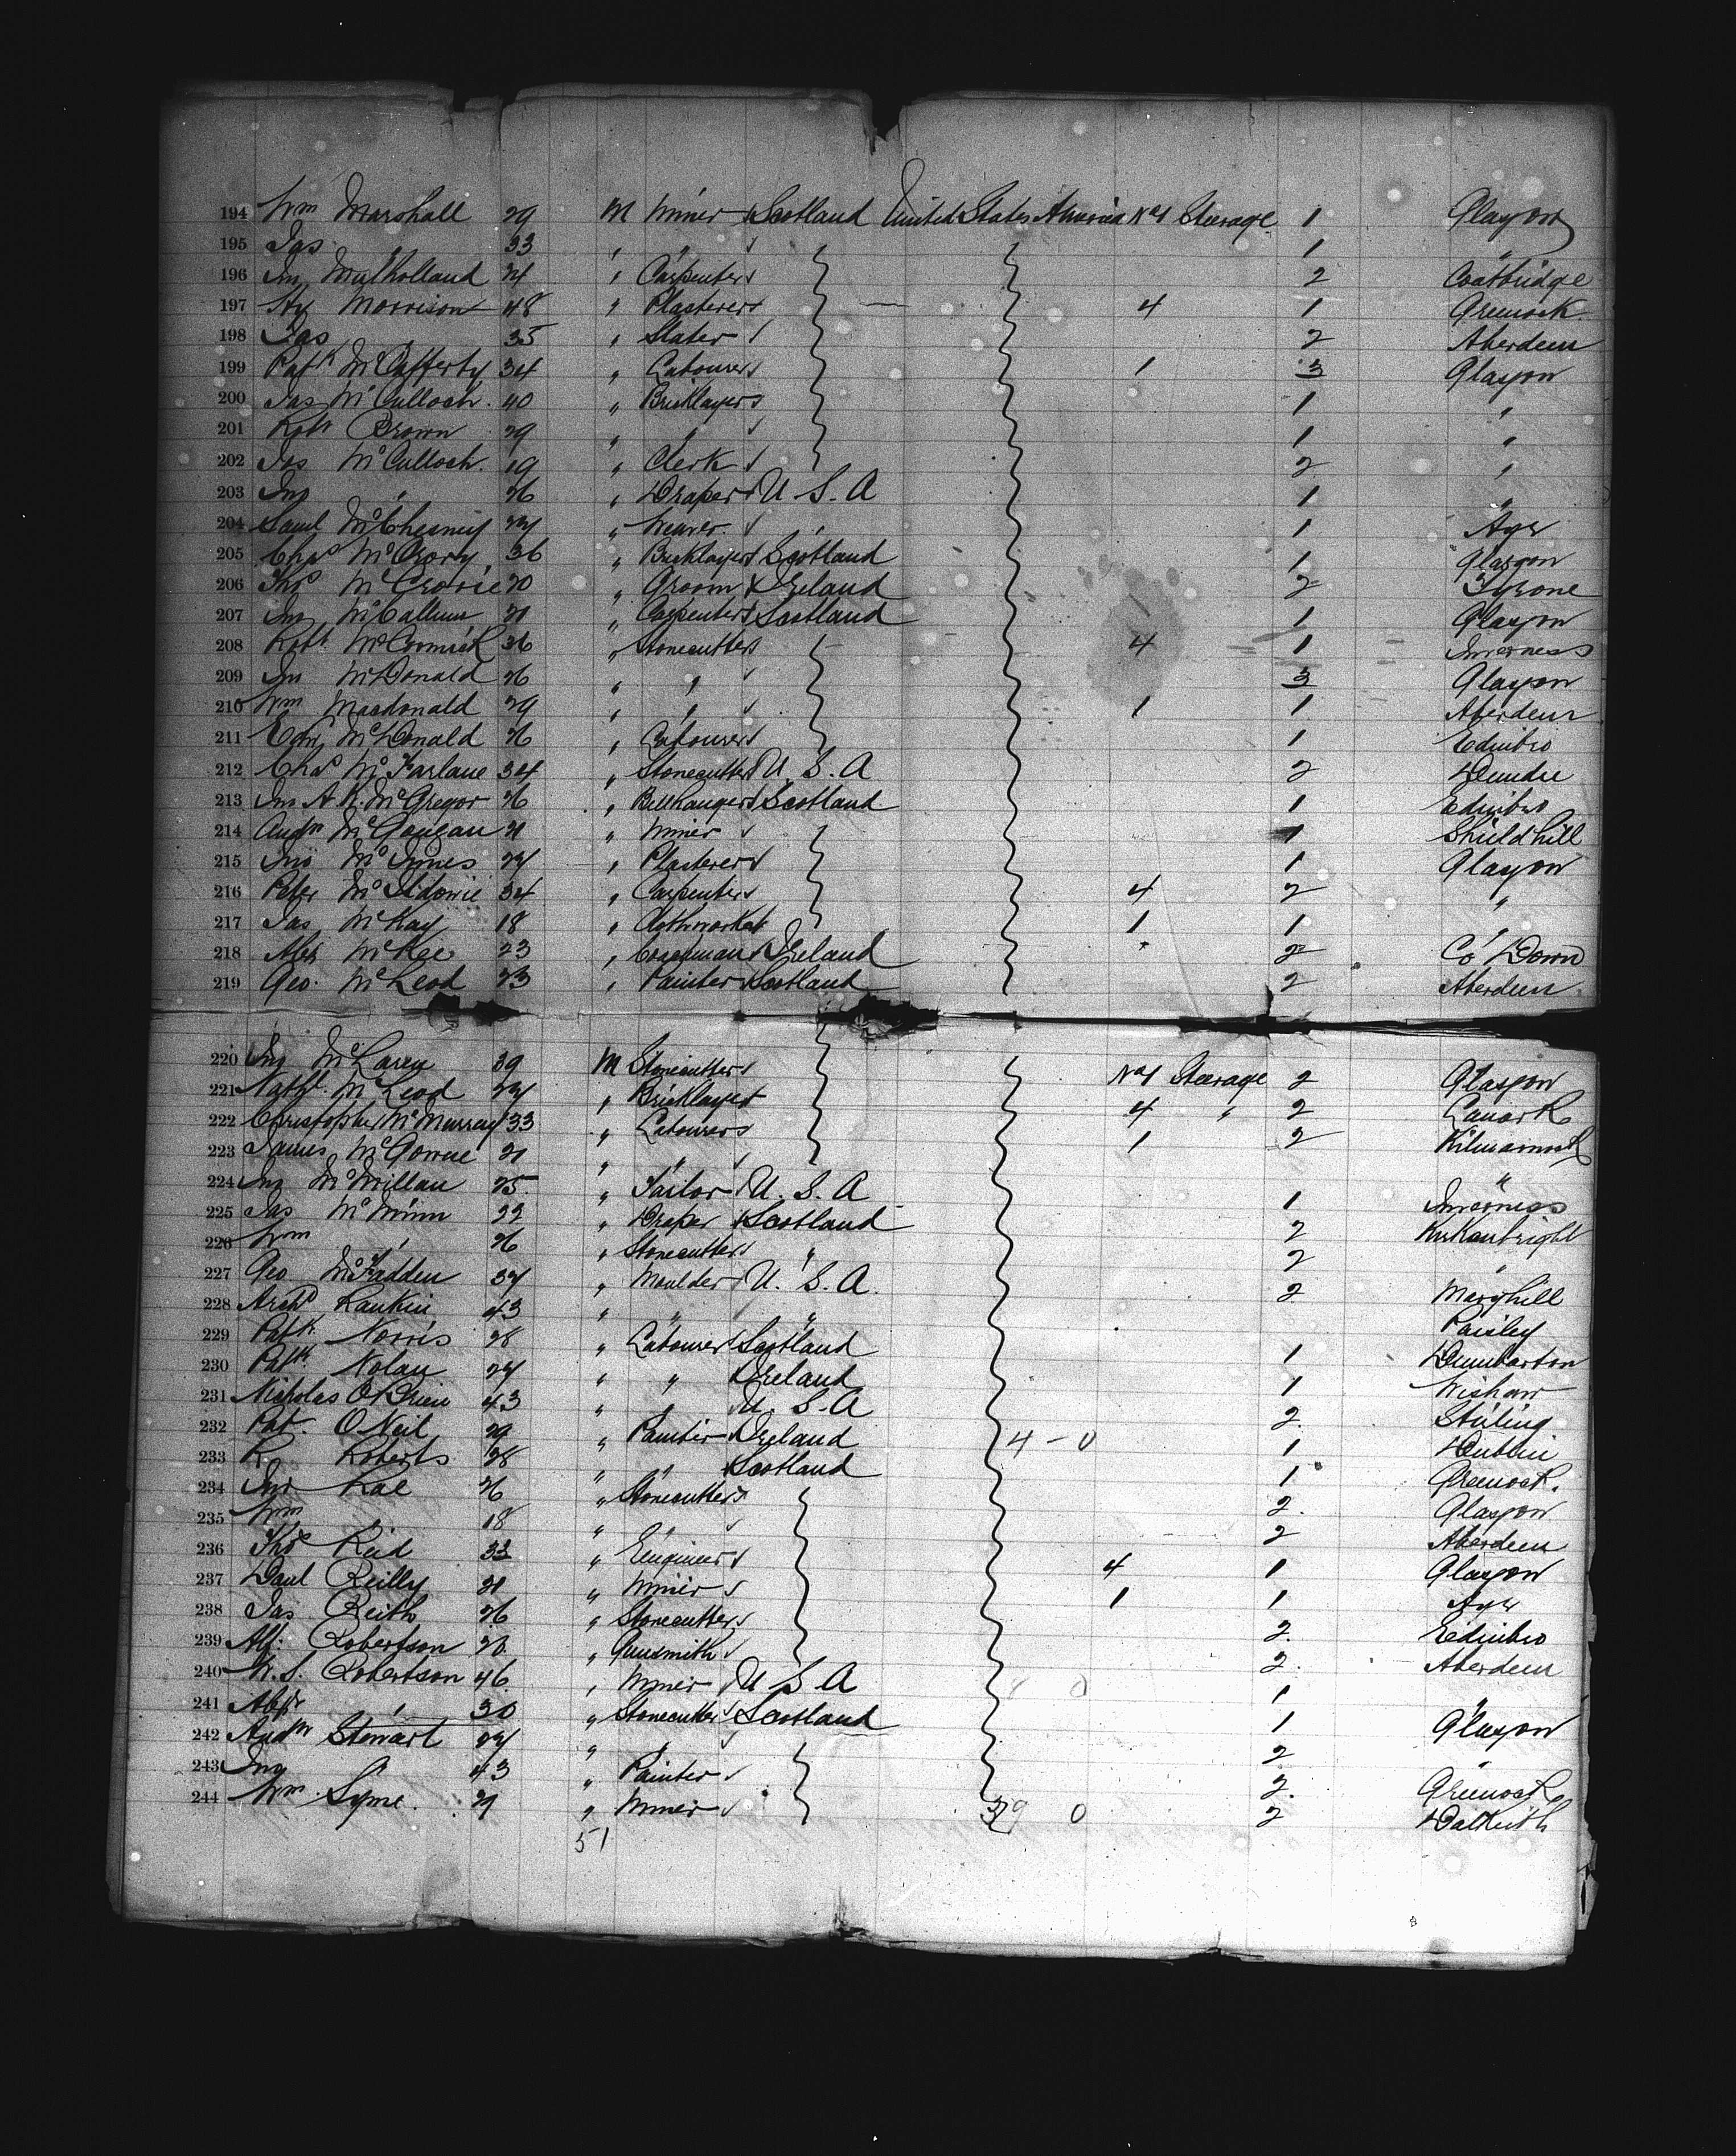 194 Wm Marshall 29 M Miner Scotland United States America No 1 Steerage 1 Glasgow
195 Jas " 33 " " 1 "
196 Jno Mulholland 21 " Carpenter 2 Coatbridge
197 Hy Morrison 48 " Plasterer 4 1 Greenock
198 Jas 35 " Slater 2 Aberdeen
199 Patk McCafferty 34 " Labourer 1 3 Glasgow
200 Jas McCulloch 40 " Bricklayer 1 "
201 Robt Brown 29 " " 1 "
202 Jas McCulloch 19 " Clerk 2 "
203 Jno " 26 " Draper U. S. A 1 "
204 Saml McChesney " Weaver 1 Ayr
205 Chas McCrory 36 " Bricklayer Scotland 1 Glasgow
206 Thos McCrorie 20 " Groom Ireland 2 Tyrone
207 Jno McCallum 21 " Carpenter Scotland 1 Glasgow
208 Robt McCormick 36 " Stonecutter 4 1 Inverness
209 Jno McDonald 26 " " 3 Glasgow
210 Wm Macdonald 29 " " 1 1 Aberdeen
211 Edwd McDonald 26 " Labourer 1 Edinbro
212 Chas McFarlane 34 " Stonecutter U. S. A 2 Dundee
213 Jno A. K. McGregor 26 " Bellhanger Scotland 1 Edinbro
214 Andw McGougan 21 " Miner 1 Shieldhill
215 Jno McInnes " Plasterer 1 Glasgow
216 Peter McIldowie 34 " Carpenter 4 2 "
217 Jas McKay 18 " Clothworker 1 1 "
218 Alex McKee 23 " Coachman Ireland 2 Co Down
219 Geo. McLeod 23 " Painter Scotland 2 Aberdeen
220 Jno McLaren 39 M Stonecutter No 1 Steerage 2 Glasgow
221 Nathl McLeod " Bricklayer 4 " 2 Lanark
222 Christopher McMurray 33 " Labourer 1 2 Kilmarnock
223 James McGowne 21 " " "
224 Jno McMillan 25 " Tailor U. S. A 1 Inverness
225 Jas McMinn 22 " Draper Scotland 2 Kirkcubright
226 Wm " 26 " Stonecutter " 2 "
227 Geo McFadden " Moulder U. S. A. 2 Maryhill
228 Archd Rankin 43 " " " Paisley
229 Patk Norris 28 " Labourer Scotland 1 Dumbarton
230 Patk Nolan " " Ireland 1 Wishaw
231 Nicholas O'Brien 43 " " U. S. A 2 Stirling
232 Pat. O'Neil 29 " Painter Ireland 4 - 0 1 Dublin
233 R. Roberts 28 " " Scotland 1 Greenock.
234 Jno Rae 26 " Stonecutter 2 Glasgow
235 Wm " 18 " " 2 Aberdeen
236 Thos Reid 33 " Engineer 4 1 Glasgow
237 Danl Reilly 21 " Miner 1 1 Ayr
238 Jas Reith 26 " Stonecutter 2 Edinbro
239 Alf. Robertson 20 " Gunsmith 2 Aberdeen
240 W. S. Robertson 46 " Miner U S A 1 "
241 Alexr " 30 " Stonecutter Scotland 1 Glasgow
242 Andw Stewart " " 2
243 Jno " 43 " Painter 2 Greenock
244 Wm. Syme. 21 " Miner 39 0 2 Dalkeith
51